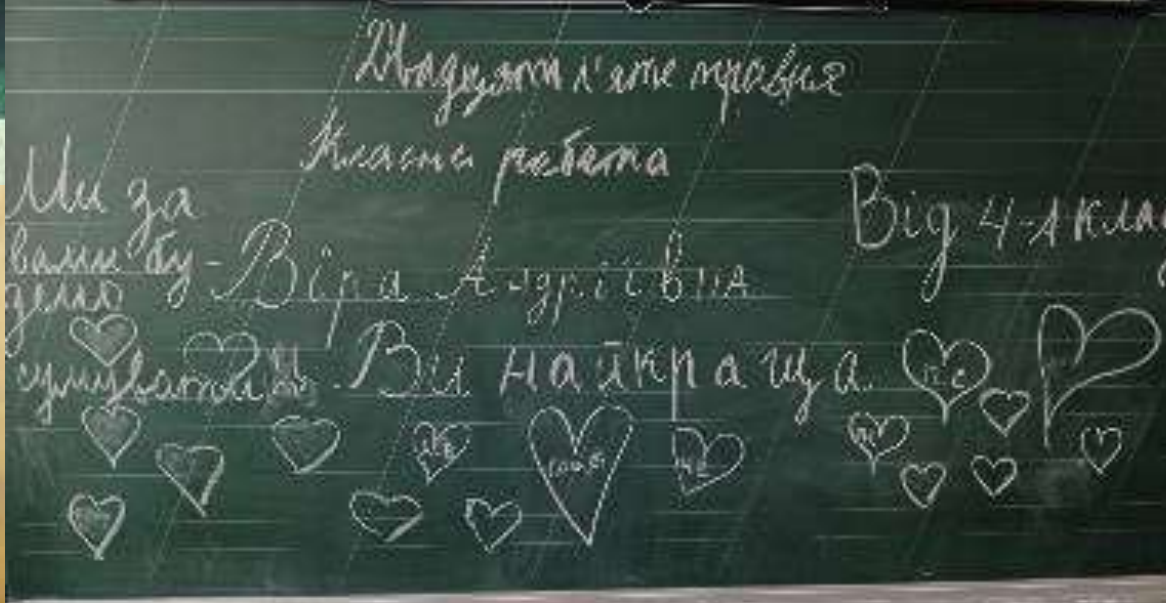 Двадцять п'яте травня
Класна робота
Ми за
вами бу-
демо
сумувати
Віра Андріївна
Ви найкраща
Від 4-А кла